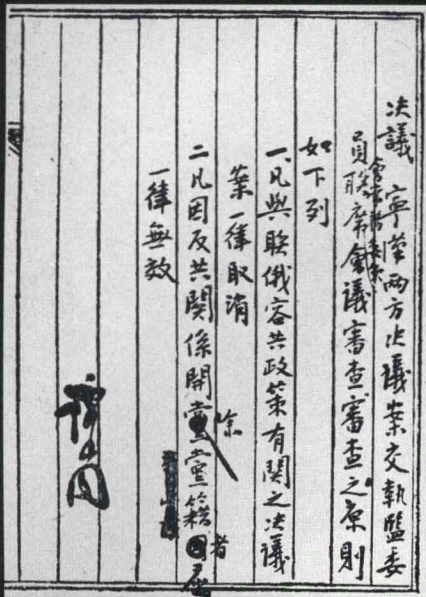 決議 寧漢兩方決議案交執監委
員聯席會議審查審查之原則
如下列
一、凡與聯俄容共政策有關之決議
案一律取消
二、凡因反共關係開除黨籍者
一律無效